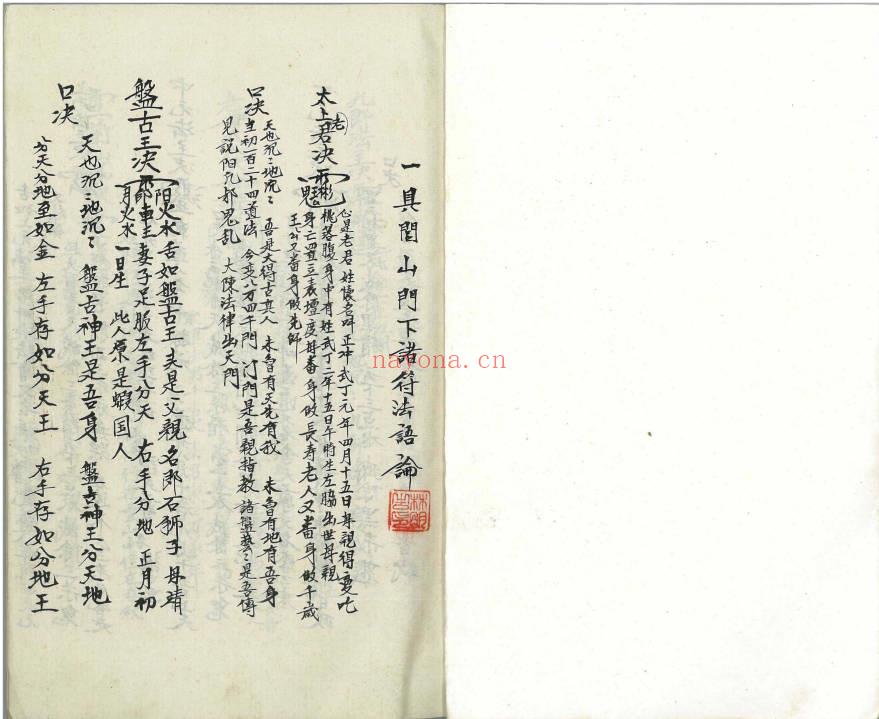 一具閭山門下诸符法語論
太上老君决
心是老君 姓懷名叫正冲 武丁元年四月十五日母親得变吃
桃落腹身中有姓 武丁二年十五日午時生 左脇出世 母親
身亡 置立表壇 度母番身做長寿老人 又番身做千歲
王公 又番身做先師
口决 天也沉〻地沉〻 吾是大得古真人 未曾有天先有我 未曾有地有吾身
当初一百二十四道法 今变八万四千門 门門是吾親指教 諸盤藝〻是吾傳
見説阳九郎鬼乱 大陳法律出天門
盤古王决
阳火水舌如盤古王 夫是父親名郎石獅子 母靖
車王妻子足服 左手分天 右手分地 正月初
月火水 一日生 此人原是蝦国人
口决 天也沉〻地沉〻 盤古神王是吾身 盤古神王分天地
分天分地至如金 左手存如分天王 右手存如分地王
nayona.cn